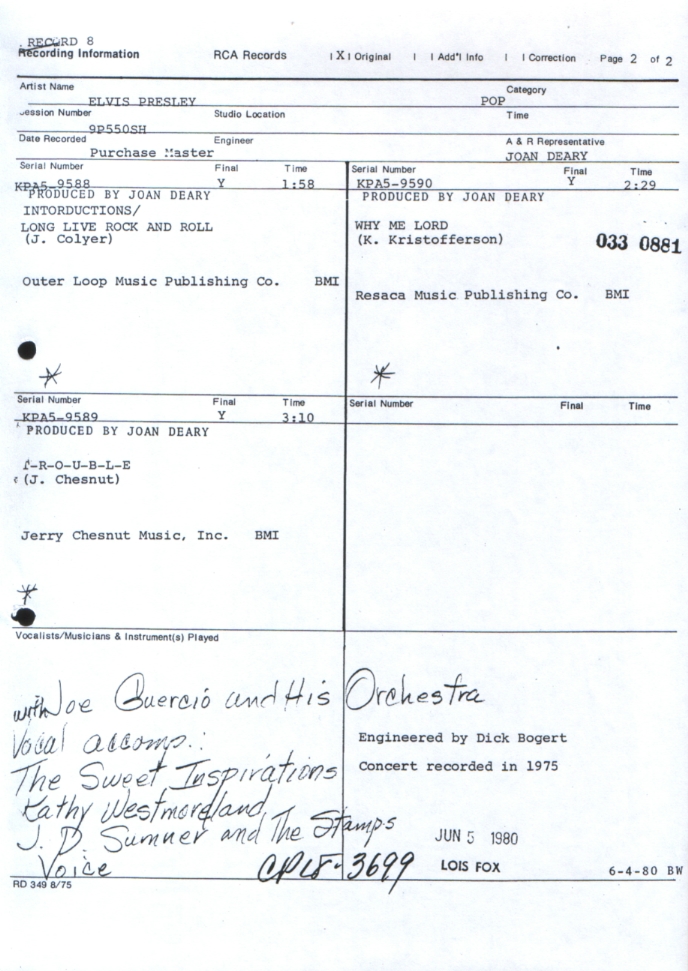 RECORD 8
Recording Information RCA Records | X | Original | | Add'l Info | | Correction Page 2 of 2
Artist Name Category
ELVIS PRESLEY POP
Session Number Studio Location Time
9P550SH
Date Recorded Engineer A & R Representative
Purchase Master JOAN DEARY
Serial Number Final Time
KPA5-9588 Y 1:58
PRODUCED BY JOAN DEARY
INTORDUCTIONS/
LONG LIVE ROCK AND ROLL
(J. Colyer)
Outer Loop Music Publishing Co. BMI
Serial Number Final Time
KPA5-9590 Y 2:29
PRODUCED BY JOAN DEARY
WHY ME LORD
(K. Kristofferson)
033 0881
Resaca Music Publishing Co. BMI
Serial Number Final Time
KPA5-9589 Y 3:10
PRODUCED BY JOAN DEARY
T-R-O-U-B-L-E
(J. Chesnut)
Jerry Chesnut Music, Inc. BMI
Serial Number Final Time
Vocalists/Musicians & Instrument(s) Played
with Joe Guercio and His Orchestra
Vocal accomp.:
The Sweet Inspirations
Kathy Westmoreland,
J. D. Sumner and The Stamps
Voice
Engineered by Dick Bogert
Concert recorded in 1975
JUN 5 1980
CPL8-3699 LOIS FOX 6-4-80 BW
RD 349 8/75